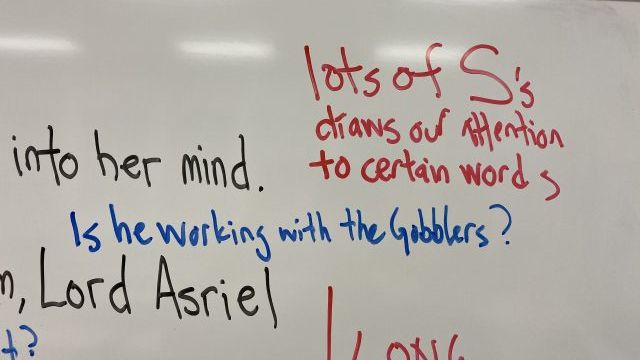 lots of S's
draws our attention
to certain words
into her mind.
Is he working with the Gobblers?
, Lord Asriel